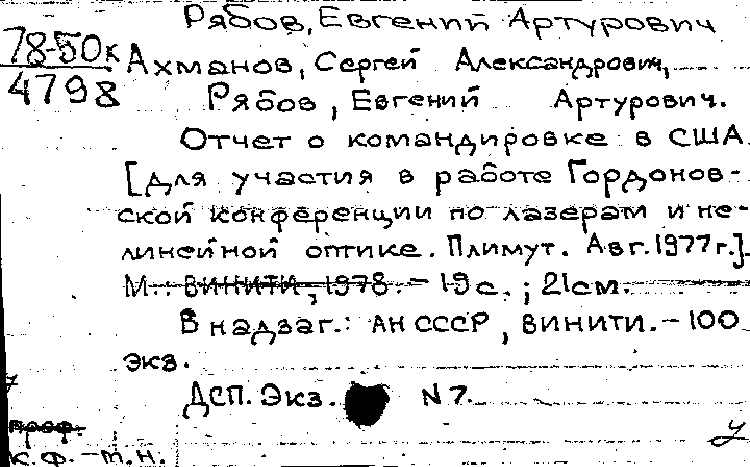 Рябов, Евгений Артурович
78-50к
4798
Ахманов, Сергей Александрович,
Рябов, Евгений Артурович.
Отчет о командировке в США
[для участия в работе Гордонов-
ской конференции по лазерам и не-
линейной оптике. Плимут. Авг. 1977г.].
М.: ВИНИТИ, 1978. - 19 с. ; 21 см.
В надзаг.: АН СССР, ВИНИТИ. - 100
экз.
ДСП. Экз. N 7.
проф.
к.ф.-м.н.